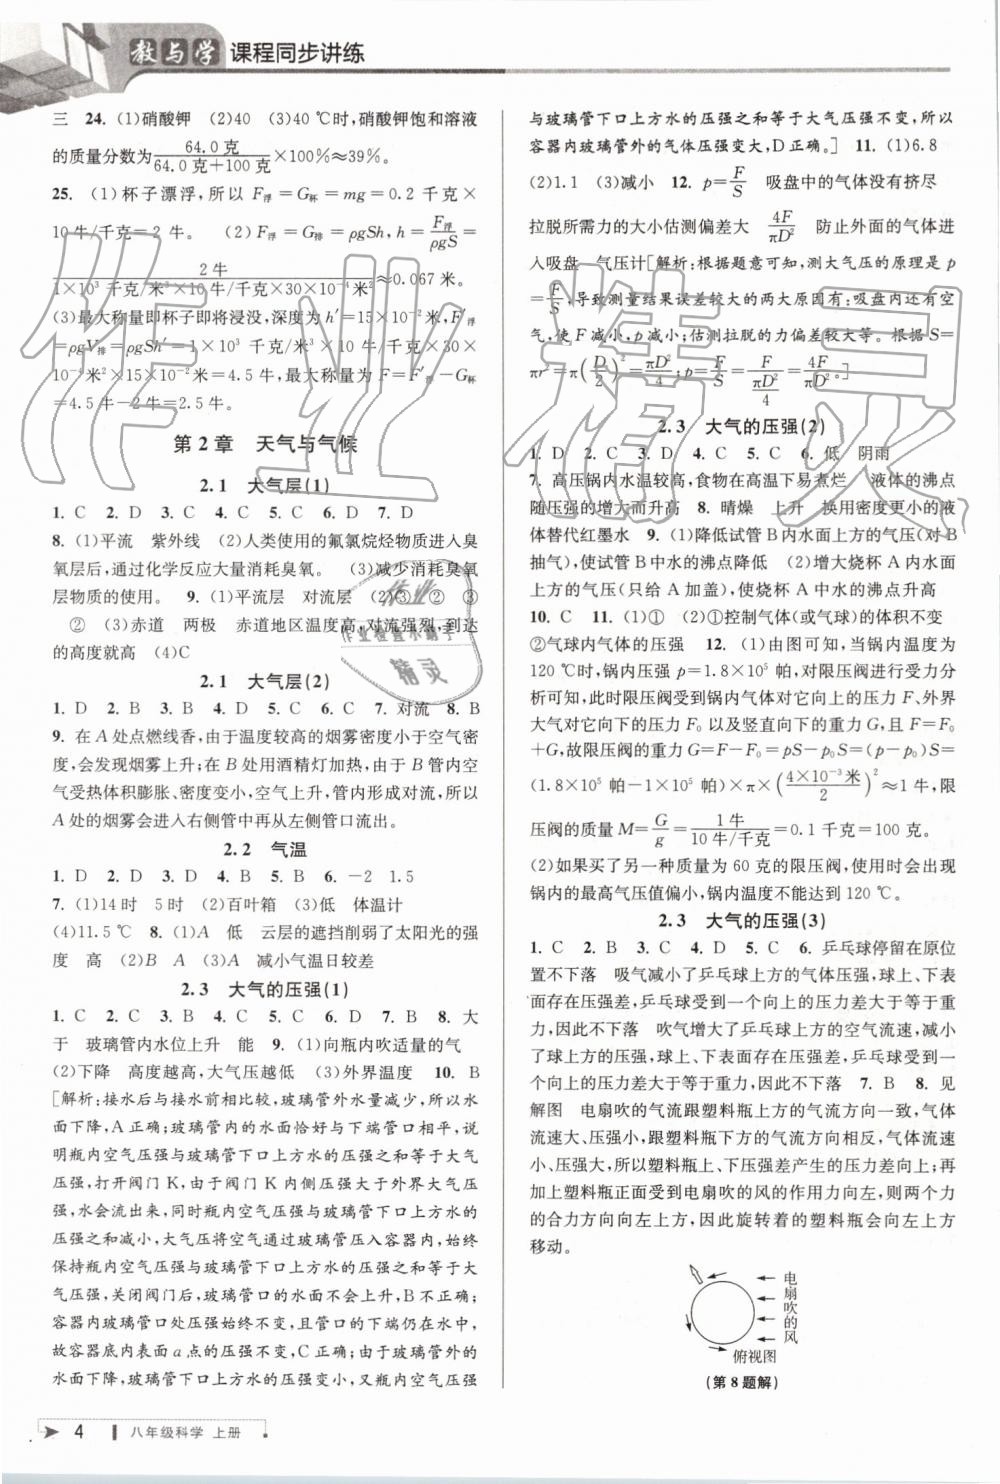 教与学 课程同步讲练
三 24. (1)硝酸钾 (2)40 (3)40 ℃时,硝酸钾饱和溶液
的质量分数为 64.0 克/(64.0 克+100 克) ×100%≈39%。
25. (1)杯子漂浮,所以 F浮=G杯=mg=0.2 千克×
10 牛/千克=2 牛。 (2)F浮=G排=ρgSh,h=F浮/ρgS=
2 牛/(1×10³ 千克/米³×10 牛/千克×30×10⁻⁴米²)≈0.067 米。
(3)最大称量即杯子即将浸没,深度为 h′=15×10⁻² 米,F′浮
=ρgV排=ρgSh′=1×10³ 千克/米³×10 牛/千克×30×
10⁻⁴米²×15×10⁻²米=4.5 牛,最大称量为 F=F′浮-G杯
=4.5 牛-2 牛=2.5 牛。
第 2 章 天气与气候
2.1 大气层(1)
1. C 2. D 3. C 4. C 5. C 6. D 7. D
8. (1)平流 紫外线 (2)人类使用的氟氯烷烃物质进入臭
氧层后,通过化学反应大量消耗臭氧。 (3)减少消耗臭氧
层物质的使用。 9. (1)平流层 对流层 (2)③ ② ③
② (3)赤道 两极 赤道地区温度高,对流强烈,到达
的高度就高 (4)C
2.1 大气层(2)
1. D 2. B 3. B 4. D 5. C 6. C 7. 对流 8. B
9. 在 A 处点燃线香,由于温度较高的烟雾密度小于空气密
度,会发现烟雾上升;在 B 处用酒精灯加热,由于 B 管内空
气受热体积膨胀、密度变小,空气上升,管内形成对流,所以
A 处的烟雾会进入右侧管中再从左侧管口流出。
2.2 气温
1. D 2. D 3. D 4. B 5. B 6. -2 1.5
7. (1)14 时 5 时 (2)百叶箱 (3)低 体温计
(4)11.5 ℃ 8. (1)A 低 云层的遮挡削弱了太阳光的强
度 高 (2)B A (3)A 减小气温日较差
2.3 大气的压强(1)
1. C 2. C 3. B 4. C 5. C 6. D 7. B 8. 大
于 玻璃管内水位上升 能 9. (1)向瓶内吹适量的气
(2)下降 高度越高,大气压越低 (3)外界温度 10. B
[解析:接水后与接水前相比较,玻璃管外水量减少,所以水
面下降,A 正确;玻璃管内的水面始终与下端管口相平,说
明瓶内空气压强与玻璃管下口上方水的压强之和等于大气
压强,打开阀门 K,由于阀门 K 内侧压强大于外界大气压
强,水会流出来,同时瓶内空气压强与玻璃管下口上方水的
压强之和减小,大气压将空气通过玻璃管压入容器内,始终
保持瓶内空气压强与玻璃管下口上方水的压强之和等于大
气压强,关闭阀门后,玻璃管外的水面不会升高,B 不正确;
容器内玻璃管口处压强始终不变,且管口的下端仍在水中,
故容器底内表面 a 点的压强不变,C 正确;由于玻璃管外的
水面下降,玻璃管下口上方水的压强变小,又瓶内空气压强
与玻璃管下口上方水的压强之和等于大气压强不变,所以
容器内玻璃管外的气体压强变大,D 正确。] 11. (1)6.8
(2)1.1 (3)减小 12. p=F/S 吸盘中的气体没有挤尽
拉脱所需力的大小估测偏差大 4F/πD² 防止外面的气体进
入吸盘 气压计[解析:根据题意可知,测大气压的原理是 p
=F/S,导致测量结果误差较大的两大原因有:吸盘内还有空
气,使 F 减小,p 减小;估测拉脱的力偏差较大等。根据 S=
πr²=π(D/2)²=πD²/4;p=F/S=F/(πD²/4)=4F/πD²。]
2.3 大气的压强(2)
1. D 2. C 3. D 4. C 5. C 6. 低 阴雨
7. 高压锅内水温较高,食物在高温下易煮烂 液体的沸点
随压强的增大而升高 8. 晴燥 上升 换用密度更小的液
体替代红墨水 9. (1)降低试管 B 内水面上方的气压(对 B
抽气),使试管 B 中水的沸点降低 (2)增大烧杯 A 中水面
上方的气压(只给 A 加盖),使烧杯 A 中水的沸点升高
10. C 11. (1)① (2)①控制气体(或气球)的体积不变
②气球内气体的压强 12. (1)由图可知,当锅内温度为
120 ℃时,锅内压强 p=1.8×10⁵ 帕,对限压阀进行受力分
析可知,此时限压阀受到锅内气体对它向上的压力 F、外界
大气对它向下的压力 F₀ 以及竖直向下的重力 G,且 F=F₀
+G,故限压阀的重力 G=F-F₀=pS-p₀S=(p-p₀)S=
(1.8×10⁵ 帕-1×10⁵ 帕)×π×(4×10⁻³米/2)²≈1 牛,限
压阀的质量 M=G/g=1 牛/(10 牛/千克)=0.1 千克=100 克。
(2)如果买了另一种质量为 60 克的限压阀,使用时会出现
锅内的最高气压值偏小,锅内温度不能达到 120 ℃。
2.3 大气的压强(3)
1. C 2. B 3. C 4. D 5. C 6. 乒乓球停留在原位
置不下落 吸气减小了乒乓球上方的气体压强,球上、下表
面存在压强差,乒乓球受到一个向上的压力差大于等于重
力,因此不下落 吹气增大了乒乓球上方的空气流速,减小
了球上方的压强,球上、下表面存在压强差,乒乓球受到一
个向上的压力差大于等于重力,因此不下落 7. B 8. 见
解图 电扇吹的气流跟塑料瓶上方的气流方向一致,气体
流速大、压强小,跟塑料瓶下方的气流方向相反,气体流速
小、压强大,所以塑料瓶上、下压强差产生的压力差向上;再
加上塑料瓶正面受到电扇吹的风的作用力向左,则两个力
的合力方向向左上方,因此旋转着的塑料瓶会向左上方
移动。
电扇吹的风
俯视图
(第 8 题解)
4 八年级科学 上册
作业精灵
作业检查小助手
精灵